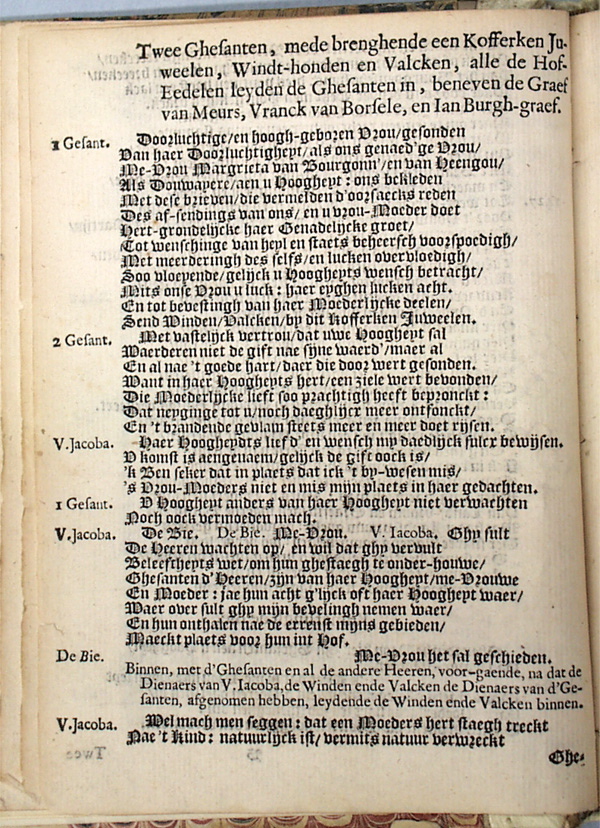 Twee Ghesanten, mede brenghende een Kofferken Ju-
weelen, Windt-honden en Valcken, alle de Hof-
Eedelen leyden de Ghesanten in, beneven de Graef
van Meurs, Vranck van Borsele, en Ian Burgh-graef.
1 Gesant. Doorluchtige/en hoogh-geboren Vrou/gesonden
Van haer Doorluchtigheyt/als ons genaed'ge Vrou/
Me-Vrou Margrieta van Bourgonn'/en van Heengou/
Als Douwayere/aen u Hoogheyt: ons bekleden
Met dese brieven/die vermelden d'oorsaecks reden
Des af-sendings van ons/en u vrou-Moeder doet
Hert-grondelijcke haer Genadelijcke groet/
Tot wenschinge van heyl en staets beheersch voorspoedigh/
Met meerderingh des selfs/en lucken overvloedigh/
Soo vloeyende/gelijck u Hoogheyts wensch betracht/
Mits onse Vrou u luck: haer eyghen lucken acht.
En tot bevestingh van haer Moederlijcke deelen/
Send Winden/Valcken/by dit Kofferken Juweelen.
2 Gesant. Met vastelijck vertrou/dat uwe Hoogheyt sal
Waerderen niet de gift nae sijne waerd'/maer al
En al nae 't goede hart/daer die door wert gesonden.
Want in haer Hoogheyts hert/een ziele wert bevonden/
Die Moederlijcke lief soo prachtigh heeft bepronckt:
Dat neyginge tot u/noch daeghlijcx meer ontfonckt/
En 't brandende gevlam steets meer en meer doet rijsen.
V. Jacoba. Haer Hoogheydts lief d' en wensch my daedlijck sulcx bewijsen.
V komst is aengenaem/gelijck de gift oock is/
'k Ben seker dat in plaets dat ick 't by-wesen mis/
's Vrou-Moeders niet en mis mijn plaets in haer gedachten.
1 Gesant. V Hoogheyt anders van haer Hoogheyt niet verwachten
Noch oock vermoeden mach.
V. Jacoba. De Bie. De Bie. Me-Vrou. V. Iacoba. Ghy sult
De Heeren wachten op/en wil dat ghy vervult
Beleefcheyts wet/om hun ghestaegh te onder-houwe/
Ghesanten d'Heeren/zijn van haer Hoogheyt/me-Vrouwe
En Moeder: jae hun acht g'lijck oft haer Hoogheyt waer/
Waer over sult ghy mijn bevelingh nemen waer/
En hun onthalen nae de errenst mijns gebieden/
Maeckt plaets voor hun int Hof.
De Bie. Me-Vrou het sal geschieden.
Binnen, met d'Ghesanten en al de andere Heeren, voor-gaende, na dat de
Dienaers van V. Iacoba, de Winden ende Valcken de Dienaers van d'Ge-
santen, afgenomen hebben, leydende de Winden ende Valcken binnen.
V. Jacoba. Wel mach men seggen: dat een Moeders hert staegh treckt
Nae 't Kind: natuurlijck ist/vermits natuur verwreckt
Ghe-